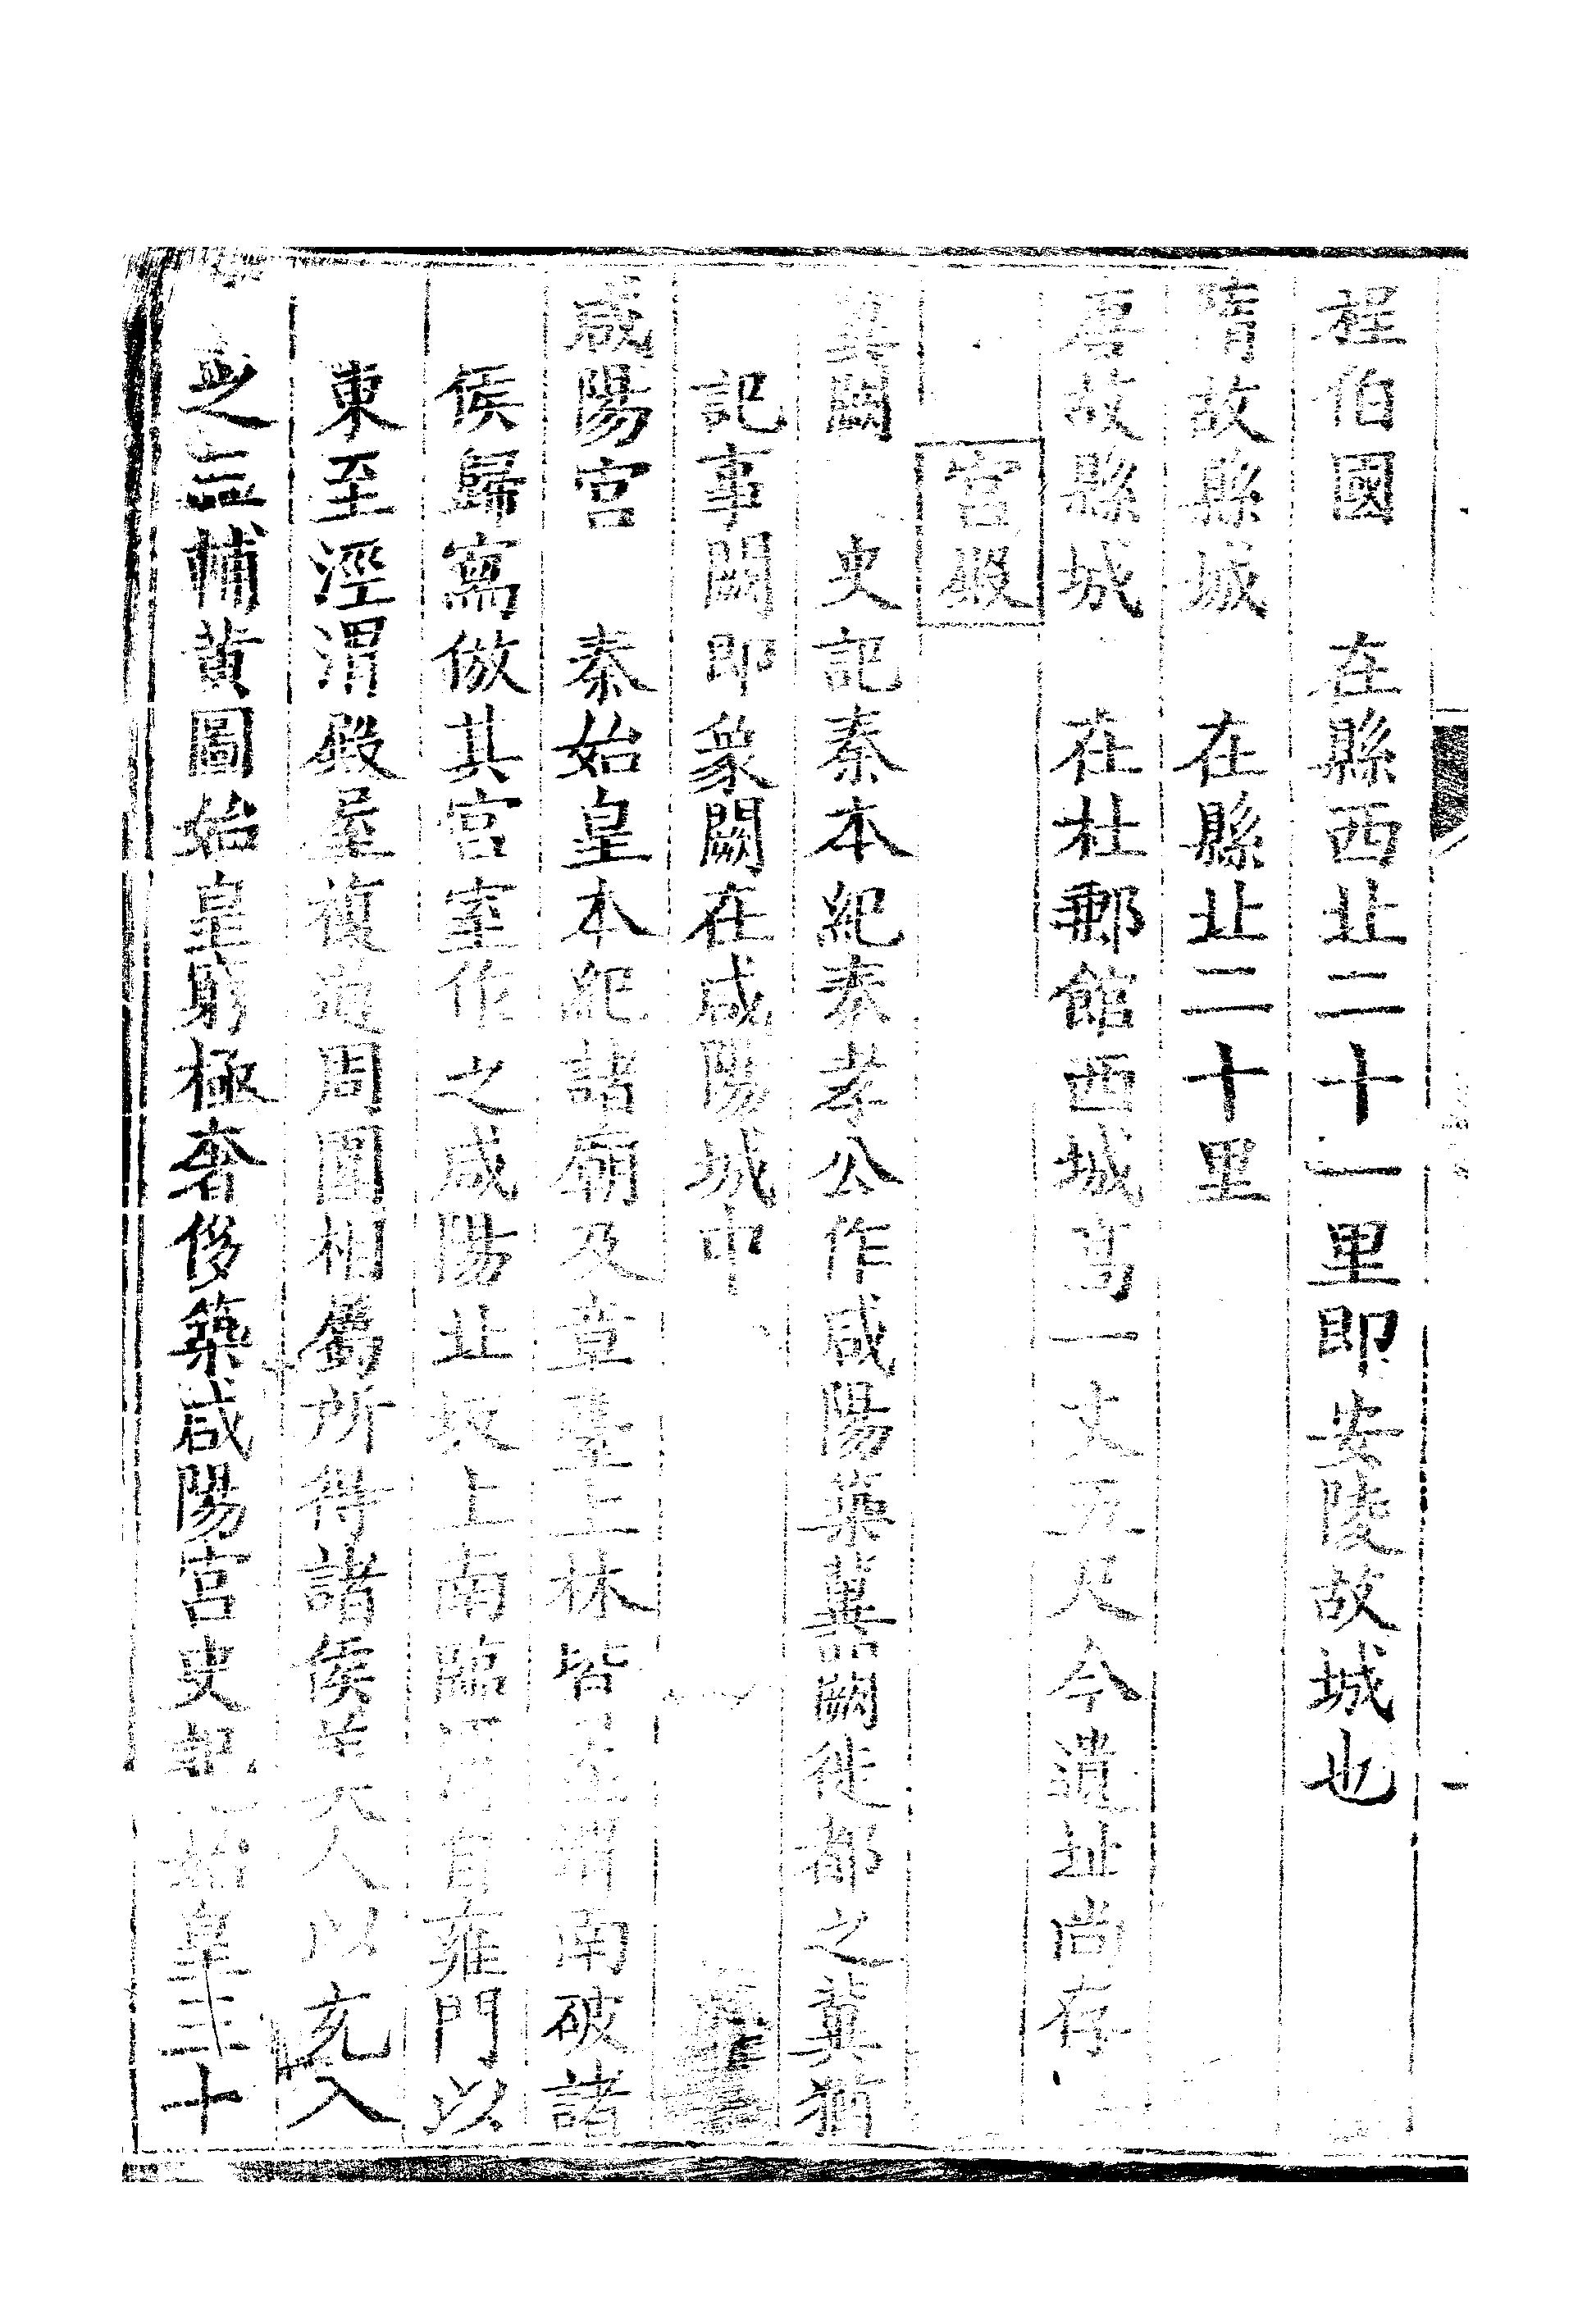 程伯國　在縣西北二十一里即安陵故城也
隋故縣城　在縣北二十里
唐故縣城　在杜郵館西城高一丈五尺今遺址尚存
宮殿
冀闕　史記秦本紀秦孝公作咸陽築冀闕徙都之冀猶
記事闕即象闕在咸陽城中
咸陽宮　秦始皇本紀諸廟及章臺上林皆在渭南破諸
侯歸寫倣其宮室作之咸陽北坂上南臨渭自雍門以
東至涇渭殿屋複道周圍相屬所得諸侯美人以充入
之三輔黃圖始皇窮極奢侈築咸陽宮史記始皇三十